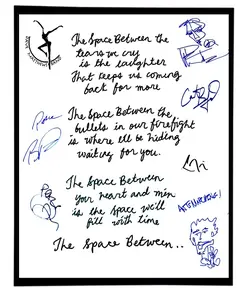 The Space Between the
tears we cry
is the laughter
That keeps us coming
back for more
The Space Between the
bullets in our firefight
is where I'll be hiding
waiting for you.
The Space Between
your heart and mine
is the space we'll
fill with time
The Space Between..